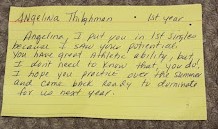 Angelina Thilghman • 1st year.
Angelina, I put you in 1st singles
because I saw your potential.
You have great Athletic ability, but
I don't need to know that, you do!
I hope you practice over the summer
and come back Ready to dominate
for us next year.